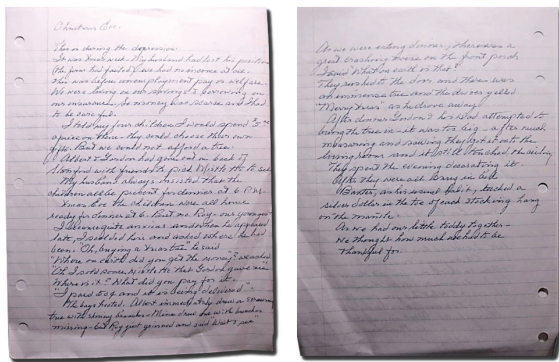 Christmas Eve.
This is during the depression.
It was Xmas and. My husband had lost his position
the firm had failed & we had no income at all.
This was before unemployment pay or welfare.
We were living on our savings & borrowing on
our insurance. So money was scarce and I had
to be careful.
I told my four children I would spend $5.00
apiece on them - they could choose their own
gifts. But we could not afford a tree.
Albert & Gordon had gone out in back of
My husband always insisted that the
children all be present for dinner at 6 P.M.
Xmas Eve the children were all home
ready for dinner at 6. But no Ray - our youngest
I became quite anxious and when he appeared
late, I scolded him and asked where he had
been. "Oh, buying a Xmas tree" he said
"Where on earth did you get the money?" we asked
"Oh I sold some mistletoe that Gordon gave me"
"Where is it? What did you pay for it.
"I paid 50¢ and it is being delivered".
The boys hooted. Albert immediately drew a
tree with
missing - but Ray just grinned and said "Wait & see"
As we were eating dinner, there was a
great crashing noise on the front porch
I said What on earth is that?
They rushed to the door and there was
an immense tree and the driver yelled
"Merry Xmas" as he drove away.
After dinner Gordon & his Dad attempted to
bring the tree in - it was too big - after much
measuring and sawing they got it into the
living room and stood it. It touched the ceiling
They spent the evening decorating it.
After they were all in bed
Baxter, as his usual habit, tucked a
silver dollar in the toe of each stocking hung
on the mantle
As we had our little toddy together -
We thought how much we had to be
thankful for.